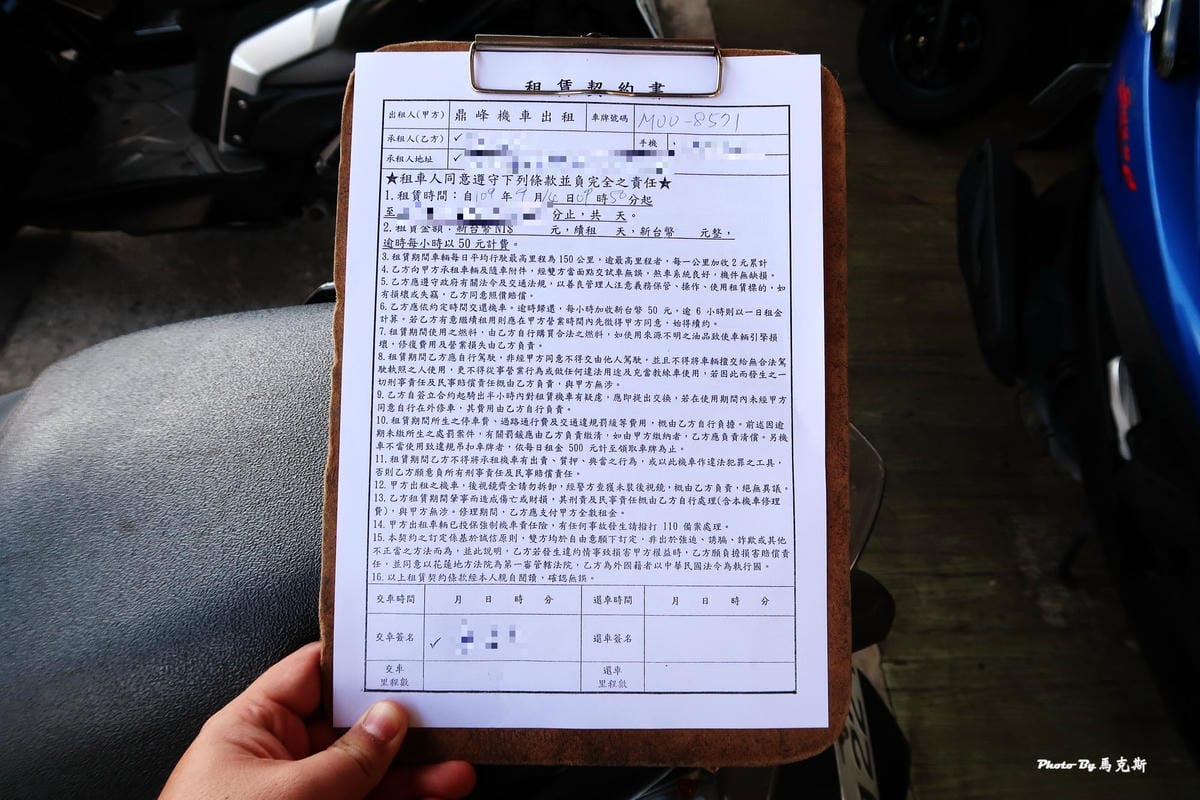 租賃契約書
出租人(甲方) 鼎峰機車出租 車牌號碼 MUU-8571
承租人(乙方) ✓ 手機
承租人地址 ✓
★租車人同意遵守下列條款並負完全之責任★
1.租賃時間:自109年9月14日09時50分起
至 分止,共 天。
2.租賃金額:新台幣NT$ 元,續租 天,新台幣 元整,
逾時每小時以50元計費。
3.租賃期間車輛每日平均行駛最高里程為150公里,逾最高里程者,每一公里加收2元累計
4.乙方向甲方承租車輛及隨車附件,經雙方當面點交試車無誤,煞車系統良好,機件無缺損。
5.乙方應遵守政府有關法令及交通法規,以善良管理人注意義務保管、操作、使用租賃標的,如
有損壞或失竊,乙方同意照價賠償。
6.乙方應依約定時間交還機車。逾時歸還,每小時加收新台幣50元,逾6小時則以一日租金
計算。若乙方有意繼續租用則應在甲方營業時間內先徵得甲方同意,始得續約。
7.租賃期間使用之燃料,由乙方自行購買合法之燃料,如使用來源不明之油品致使車輛引擎損
壞,修復費用及營業損失由乙方負責。
8.租賃期間乙方應自行駕駛,非經甲方同意不得交由他人駕駛,並且不得將車輛擅交給無合法駕
駛執照之人使用,更不得從事營業行為或做任何違法用途及充當教練車使用,若因此而發生之一
切刑事責任及民事賠償責任概由乙方負責,與甲方無涉。
9.乙方自簽立合約起騎出半小時內對租賃機車有疑慮,應即提出交換,若在使用期間內未經甲方
同意自行在外修車,其費用由乙方自行負責。
10.租賃期間所生之停車費,過路通行費及交通違規罰緩等費用,概由乙方自行負擔。前述因逾
期未繳所生之處罰案件,有關罰鍰應由乙方負責繳清,如由甲方繳納者,乙方應負責清償。另機
車不當使用致違規吊扣車牌者,依每日租金500元計至領取車牌為止。
11.租賃期間乙方不得將承租機車有出賣、質押、典當之行為,或以此機車作違法犯罪之工具,
否則乙方願意負所有刑事責任及民事賠償責任。
12.甲方出租之機車,後視鏡齊全請勿拆卸,經警方查獲未裝後視鏡,概由乙方負責,絕無異議。
13.乙方租賃期間肇事而造成傷亡或財損,其刑責及民事責任概由乙方自行處理(含本機車修理
費),與甲方無涉。修理期間,乙方應支付甲方全數租金。
14.甲方出租車輛已投保強制機車責任險,有任何事故發生請撥打110備案處理。
15.本契約之訂定係基於誠信原則,雙方均於自由意願下訂定,非出於強迫、誘騙、詐欺或其他
不正當之方法而為,並此說明,乙方若發生違約情事致損害甲方權益時,乙方願負擔損害賠償責
任,並同意以花蓮地方法院為第一審管轄法院,乙方為外國籍者以中華民國法令為執行國。
16.以上租賃契約條款經本人親自閱讀,確認無誤。
交車時間 月 日 時 分 還車時間 月 日 時 分
交車簽名 ✓ 還車簽名
交車 還車
里程數 里程數
Photo By 馬克斯